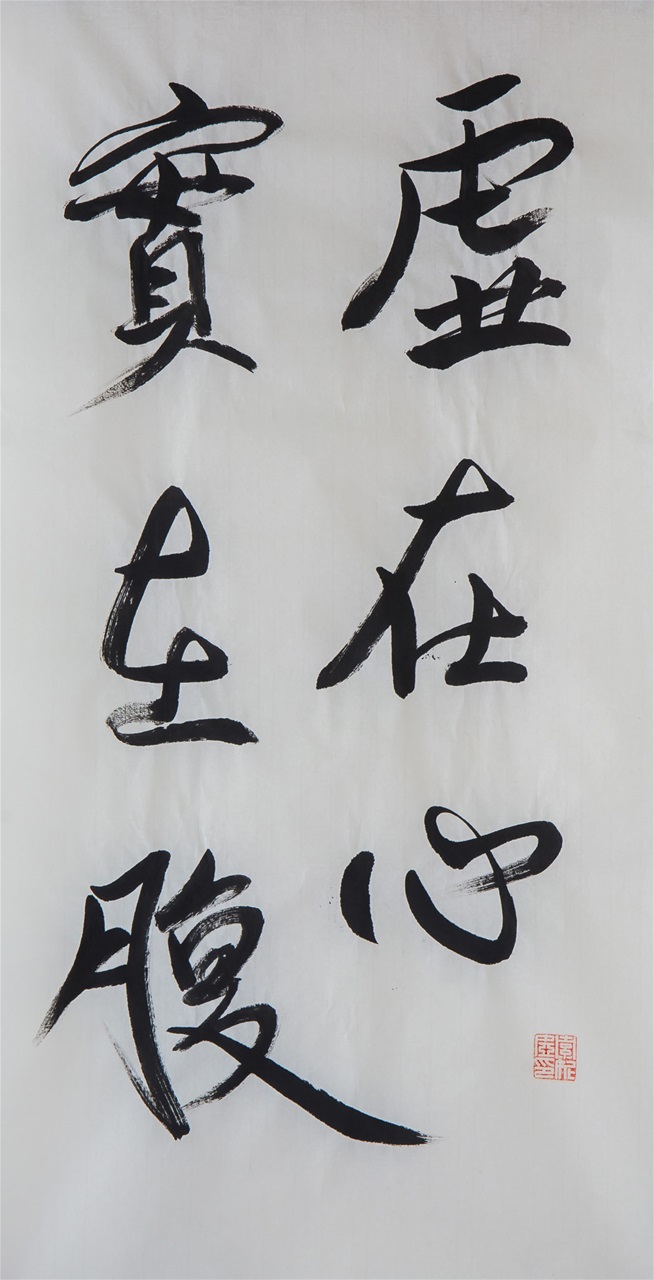 虚在心
實在腹